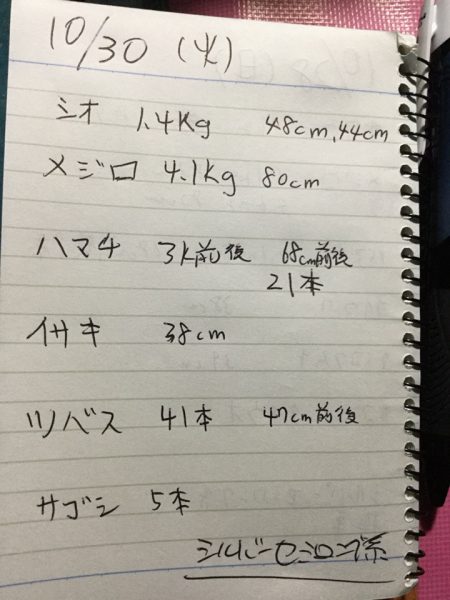 10/30 (火)
シオ 1.4Kg 48cm, 44cm
メジロ 4.1kg 80cm
ハマチ 3k前後 68cm前後
21本
イサキ 38cm
ツバス 41本 47cm前後
サゴシ 5本
シルバーセミロング系